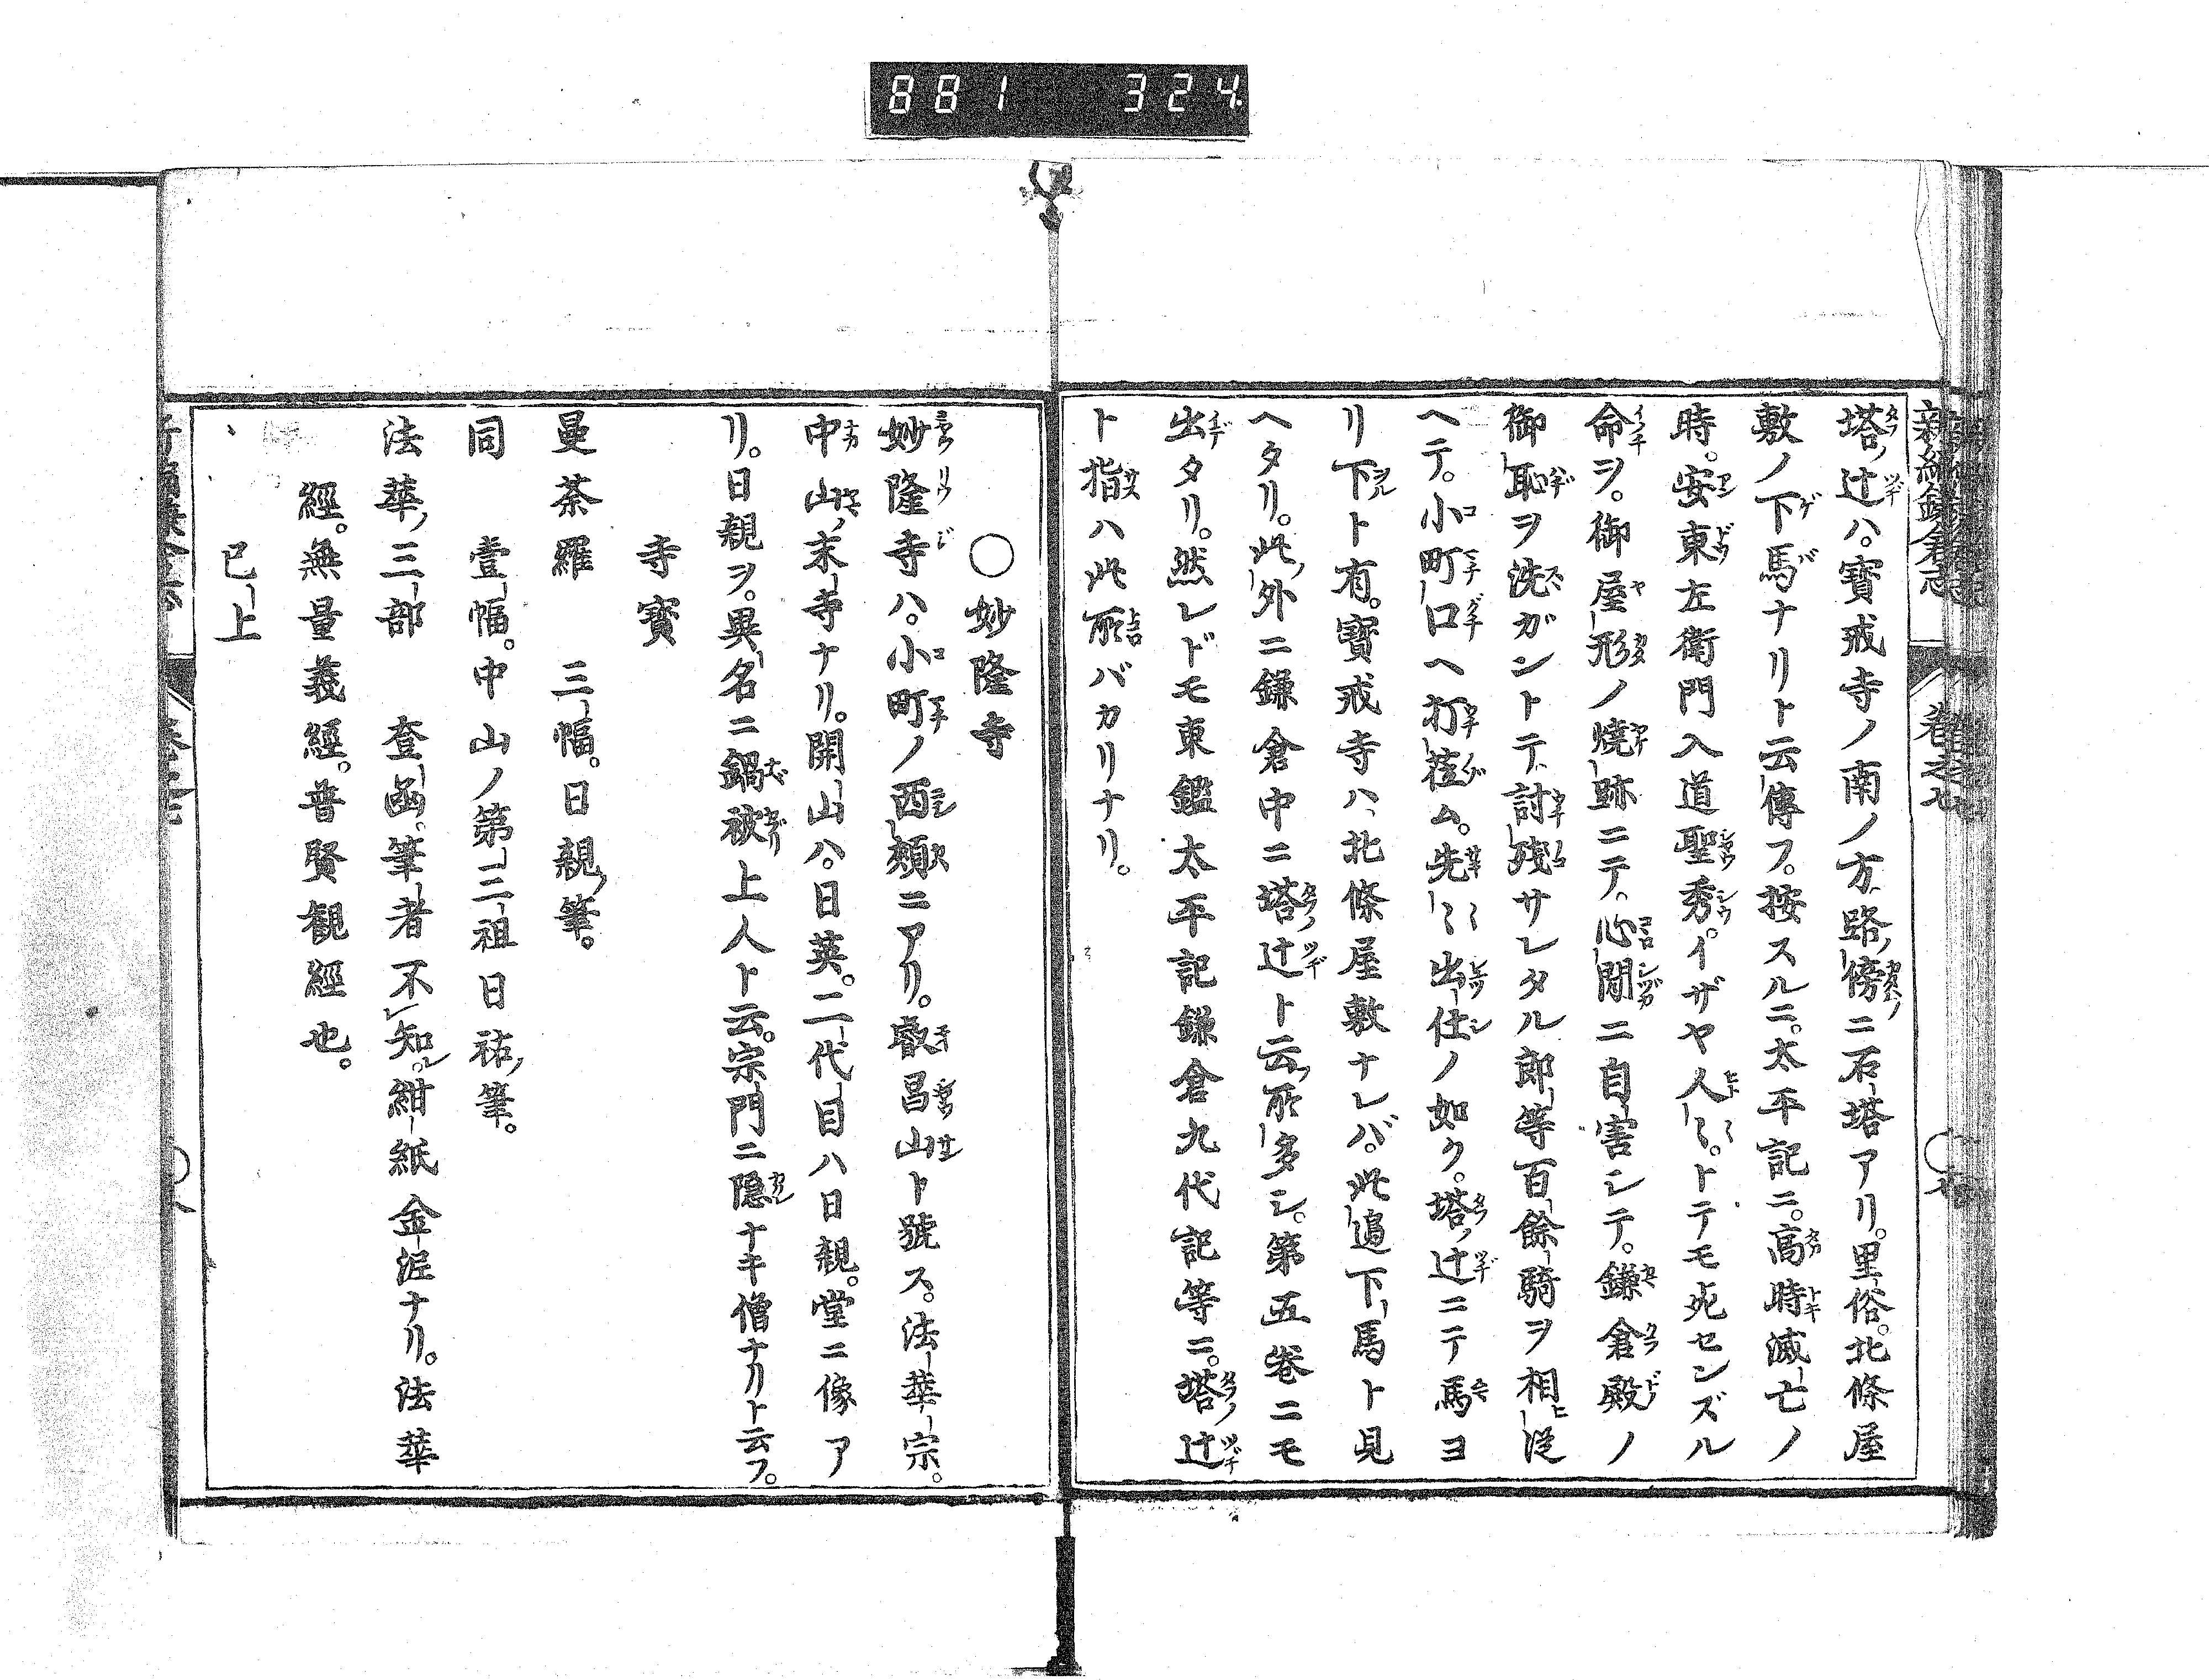 881 324
新編鎌倉志 卷之七
塔辻ハ。寶戒寺ノ南ノ方。路傍ニ石塔アリ。里俗。北條屋
敷ノ下馬ナリト云傳フ。按スルニ。太平記ニ。高時滅亡ノ
時。安東左衛門入道聖秀。イザヤ人〻。トテモ死センズル
命ヲ。御屋形ノ燒跡ニテ。心閒ニ自害シテ。鎌倉殿ノ
御恥ヲ洗ガントテ、討殘サレタル郎等百餘騎ヲ相從
ヘテ。小町口ヘ打莅ム。先〻出仕ノ如ク。塔辻ニテ馬ヨ
リ下ト有。寶戒寺ハ、北條屋敷ナレバ。此邉下馬ト見
ヘタリ。此外ニ鎌倉中ニ塔辻ト云所多シ。第五卷ニモ
出タリ。然レドモ東鑑太平記鎌倉九代記等ニ。塔辻
ト指ハ此所バカリナリ。
〇妙隆寺
妙隆寺ハ。小町ノ西頬ニアリ。叡昌山ト號ス。法華宗。
中山末寺ナリ。開山ハ。日英。二代目ハ日親。堂ニ像ア
リ。日親ヲ。異名ニ鍋被上人ト云。宗門ニ隱ナキ僧ナリト云フ。
寺寶
曼荼羅 三幅。日親筆。
同 壹幅。中山ノ第三祖日祐筆。
法華三部 壹凾。筆者不知。紺紙金泥ナリ。法華
經。無量義經。普賢觀經也。
已上